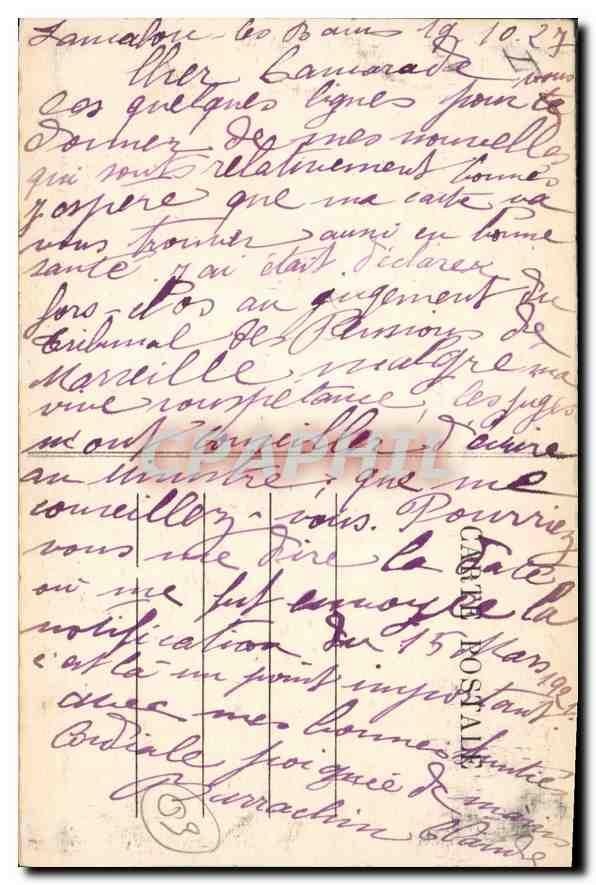 Lamalou-les Bains 19 10.27
Cher Camarade
ces quelques lignes pour vous
donner de mes nouvelles
qui sont relativement bonnes
j'ospère que ma carte va
vous trouver aussi en bonne
santé j'ai était déclarer
fors-clos au jugement du
tribunal des Pensions de
Marseille malgre ma
vive rouspétance, les juges
m'ont conseiller d'écrire
au ministre, que me
conseillez-vous. Pourriez
vous me dire la date
où me fut envoyée la
notification du 15 Mars 192
c'est là un point important.
avec mes bonnes amitiés
Cordiale poignée de mains
Burrachin
CARTE POSTALE
CPAPHIL
63